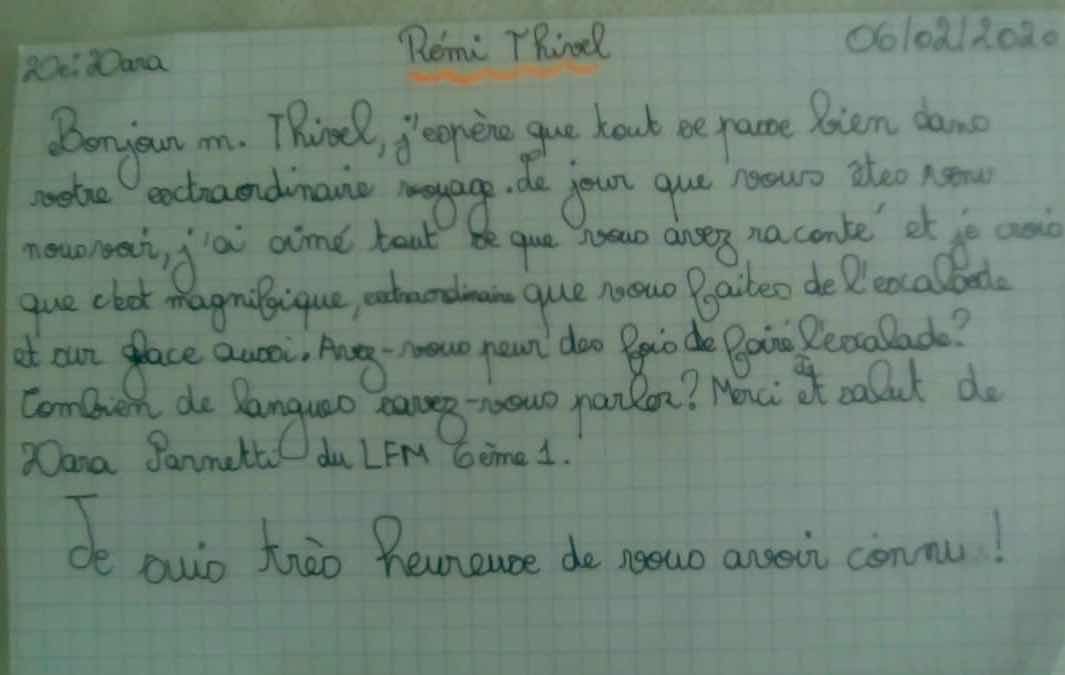 De: Dara Rémi Thivel 06/02/2020
Bonjour m. Thivel, j'espère que tout se passe bien dans
votre exctraordinaire voyage. Le jour que vous êtes venu
nous voir, j'ai aimé tout ce que vous avez raconté et je crois
que c'est magnifique, extraordinaire que vous faites de l'escalade
et sur glace aussi. Avez-vous peur des fois de faire l'escalade?
Combien de langues savez-vous parler? Merci et salut de
Dara du LFM 6ème 1.
Je suis très heureuse de vous avoir connu!